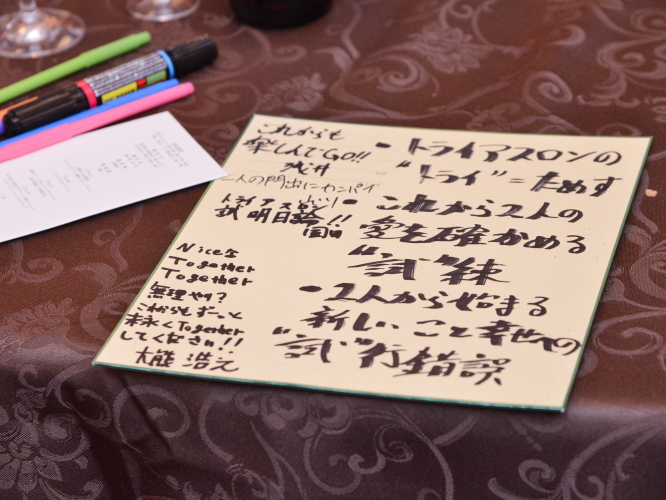 これからも
楽しんでGO!!
浅井
二人の門出にカンパイ
トライアスロン
試 明日論!!
Niceな
Together
Together
無理やり?
これからもずーっと
末永くTogether
してください!!
大熊 浩之
・トライアスロンの
"トライ"=ためす
・これから2人の
愛を確かめる
"試"練
・2人から始まる
新しいこと幸せへの
"試"行錯誤